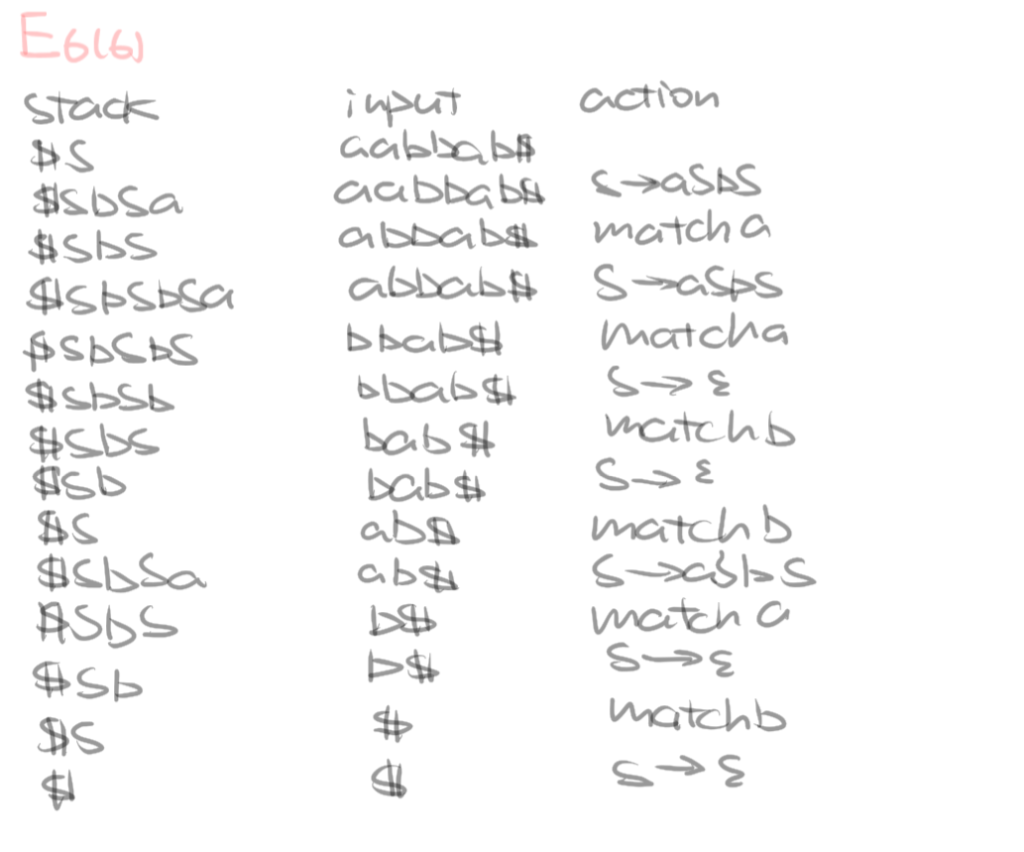 E6(6)
stack input action
$S aabbab$
$SbSa aabbab$ S→aSbS
$SbS abbab$ match a
$SbSbSa abbab$ S→aSbS
$SbSbS bbab$ match a
$SbSb bbab$ S→ε
$SbS bab$ match b
$Sb bab$ S→ε
$S ab$ match b
$SbSa ab$ S→aSbS
$SbS b$ match a
$Sb b$ S→ε
$S $ match b
$ $ S→ε